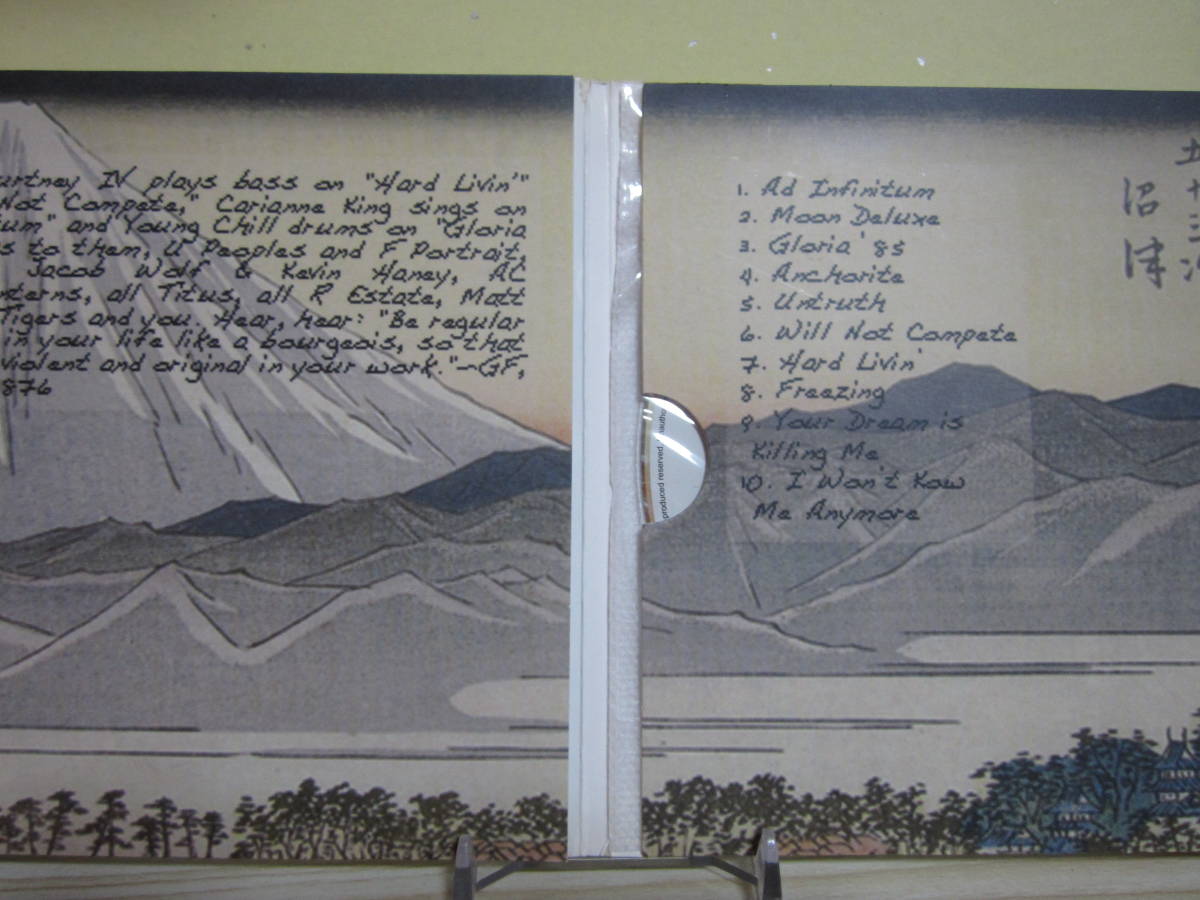 urtney IV plays bass on "Hard Livin'"
Not Compete," Carianne King sings on
um" and Young Chill drums on "Gloria
s to them, U Peoples and F Portrait,
Jacob Wolf & Kevin Haney, AC
nterns, all Titus, all R Estate, Matt
Tigers and you. Hear, hear: "Be regular
in your life like a bourgeois, so that
violent and original in your work."—GF,
876
1. Ad Infinitum
2. Moon Deluxe
3. Gloria '85
4. Anchorite
5. Untruth
6. Will Not Compete
7. Hard Livin'
8. Freezing
9. Your Dream is
Killing Me
10. I Won't Kow
Me Anymore
沼津
reserved